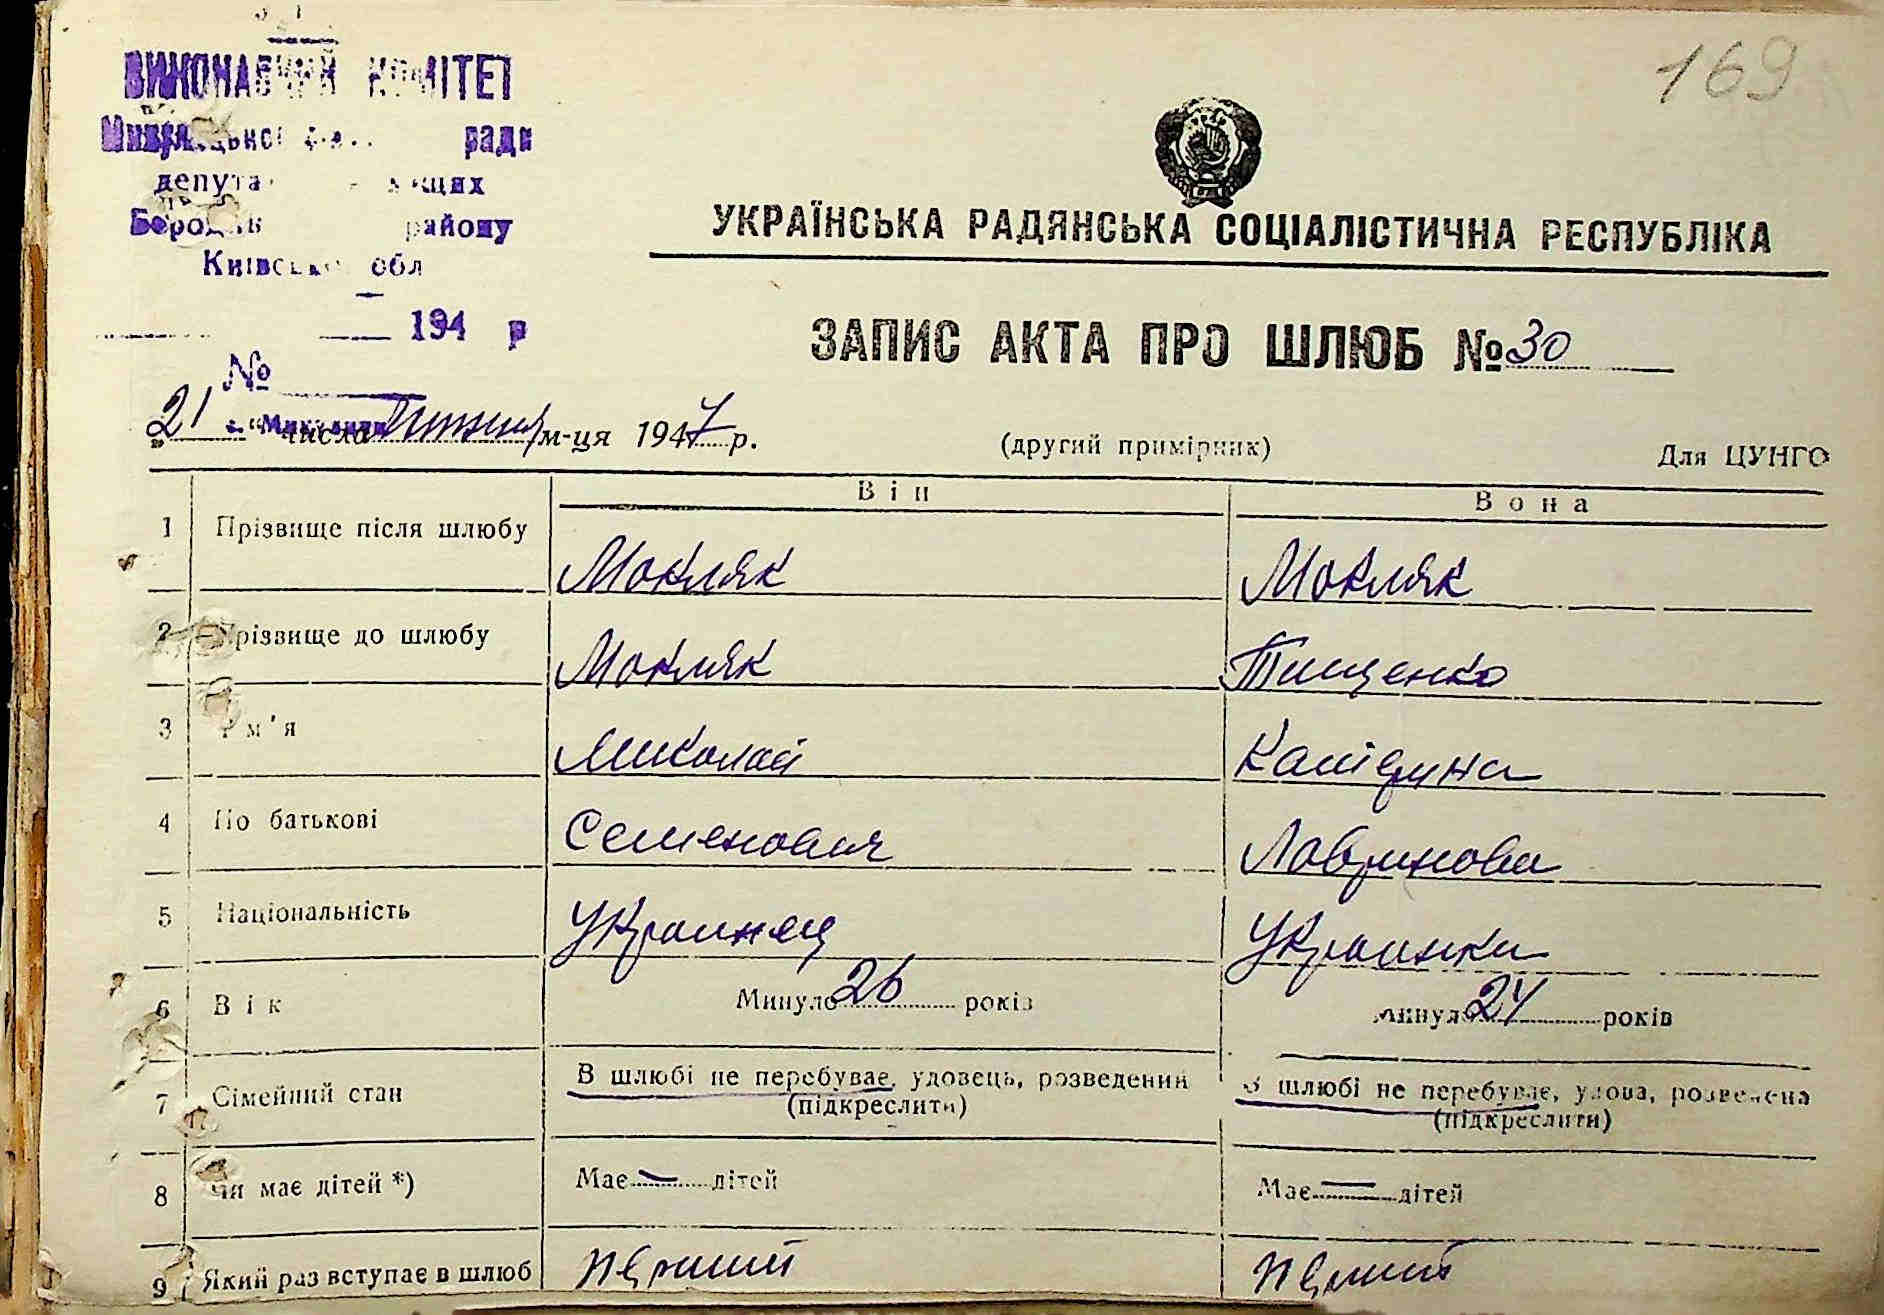 169
ВИКОНАВЧИЙ КОМІТЕТ
Микулицької ради
депутатів трудящих
Бородян району
Київської обл
194 р
№
УКРАЇНСЬКА РАДЯНСЬКА СОЦІАЛІСТИЧНА РЕСПУБЛІКА
ЗАПИС АКТА ПРО ШЛЮБ № 30
21 числа м-ця 1947 р.
(другий примірник)
Для ЦУНГО
Він Вона
1 Прізвище після шлюбу Мокляк Мокляк
2 Прізвище до шлюбу Мокляк Тищенко
3 Ім'я Миколай Катерина
4 По батькові Семенович Лавринова
5 Національність Українец Украинка
6 Вік Минуло 26 років Минуло 24 років
7 Сімейний стан В шлюбі не перебуває, удовець, розведений (підкреслити) В шлюбі не перебуває, удова, розведена (підкреслити)
8 Чи має дітей *) Має — дітей Має — дітей
9 Який раз вступає в шлюб перший перший